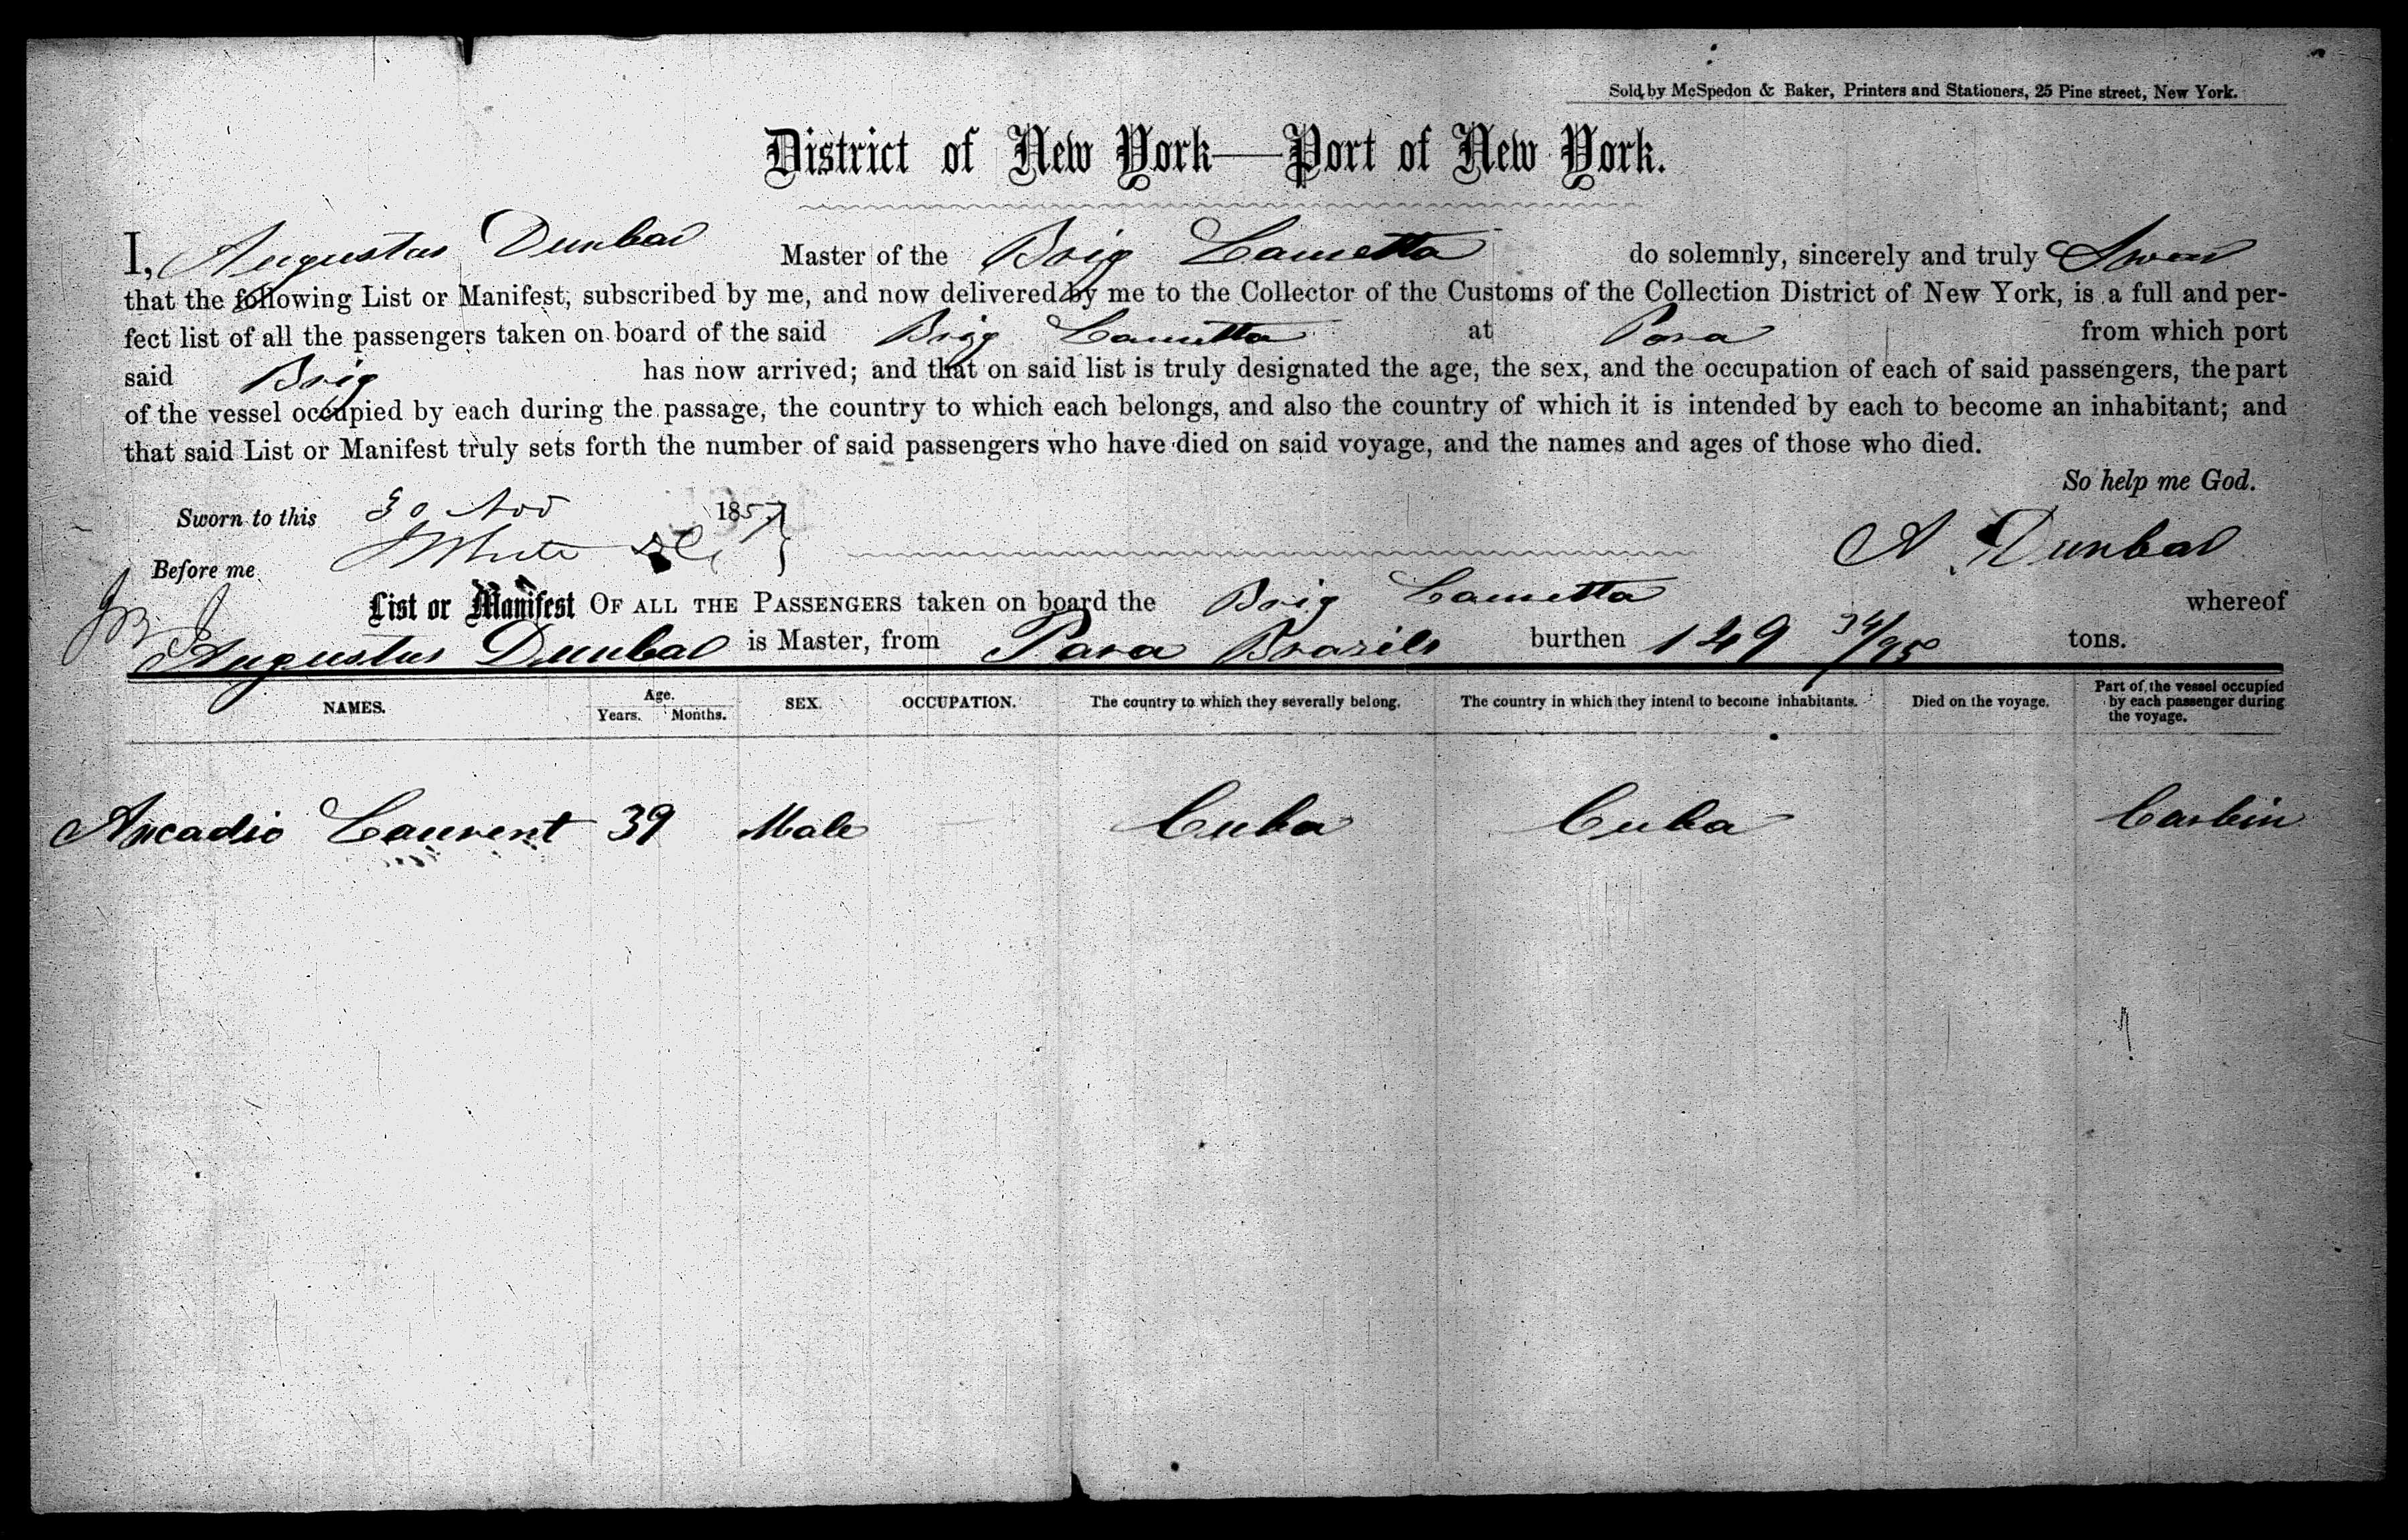 Sold by McSpedon & Baker, Printers and Stationers, 25 Pine street, New York.
District of New York—Port of New York.
I, Augustus Dunbar Master of the Brig Cametta do solemnly, sincerely and truly Swear
that the following List or Manifest, subscribed by me, and now delivered by me to the Collector of the Customs of the Collection District of New York, is a full and per-
fect list of all the passengers taken on board of the said Brig Cametta at Para from which port
said Brig has now arrived; and that on said list is truly designated the age, the sex, and the occupation of each of said passengers, the part
of the vessel occupied by each during the passage, the country to which each belongs, and also the country of which it is intended by each to become an inhabitant; and
that said List or Manifest truly sets forth the number of said passengers who have died on said voyage, and the names and ages of those who died.
So help me God.
Sworn to this 30 Nov 1857
Before me A Dunbar
List or Manifest OF ALL THE PASSENGERS taken on board the Brig Cametta whereof
Augustus Dunbar is Master, from Para Brazils burthen 149 34/95 tons.
NAMES. Age. Years. Months. SEX. OCCUPATION. The country to which they severally belong. The country in which they intend to become inhabitants. Died on the voyage. Part of the vessel occupied by each passenger during the voyage.
Arcadio Laurent 39 Male Cuba Cuba Carbin